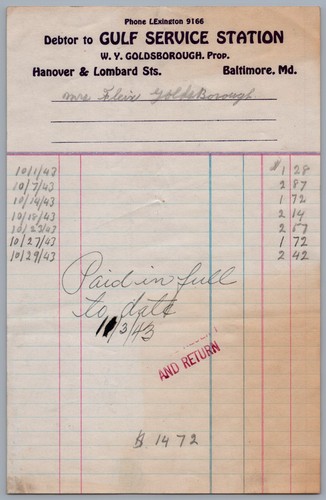 Phone LExington 9166
Debtor to GULF SERVICE STATION
W. Y. GOLDSBOROUGH, Prop.
Hanover & Lombard Sts. Baltimore, Md.
Mrs GoldsBorough
10/1/43 $1 28
10/7/43 2 87
10/14/43 1 72
10/18/43 2 14
10/23/43 2 57
10/27/43 1 72
10/29/43 2 42
Paid in full
to date
11/3/43
AND RETURN
$ 14 72